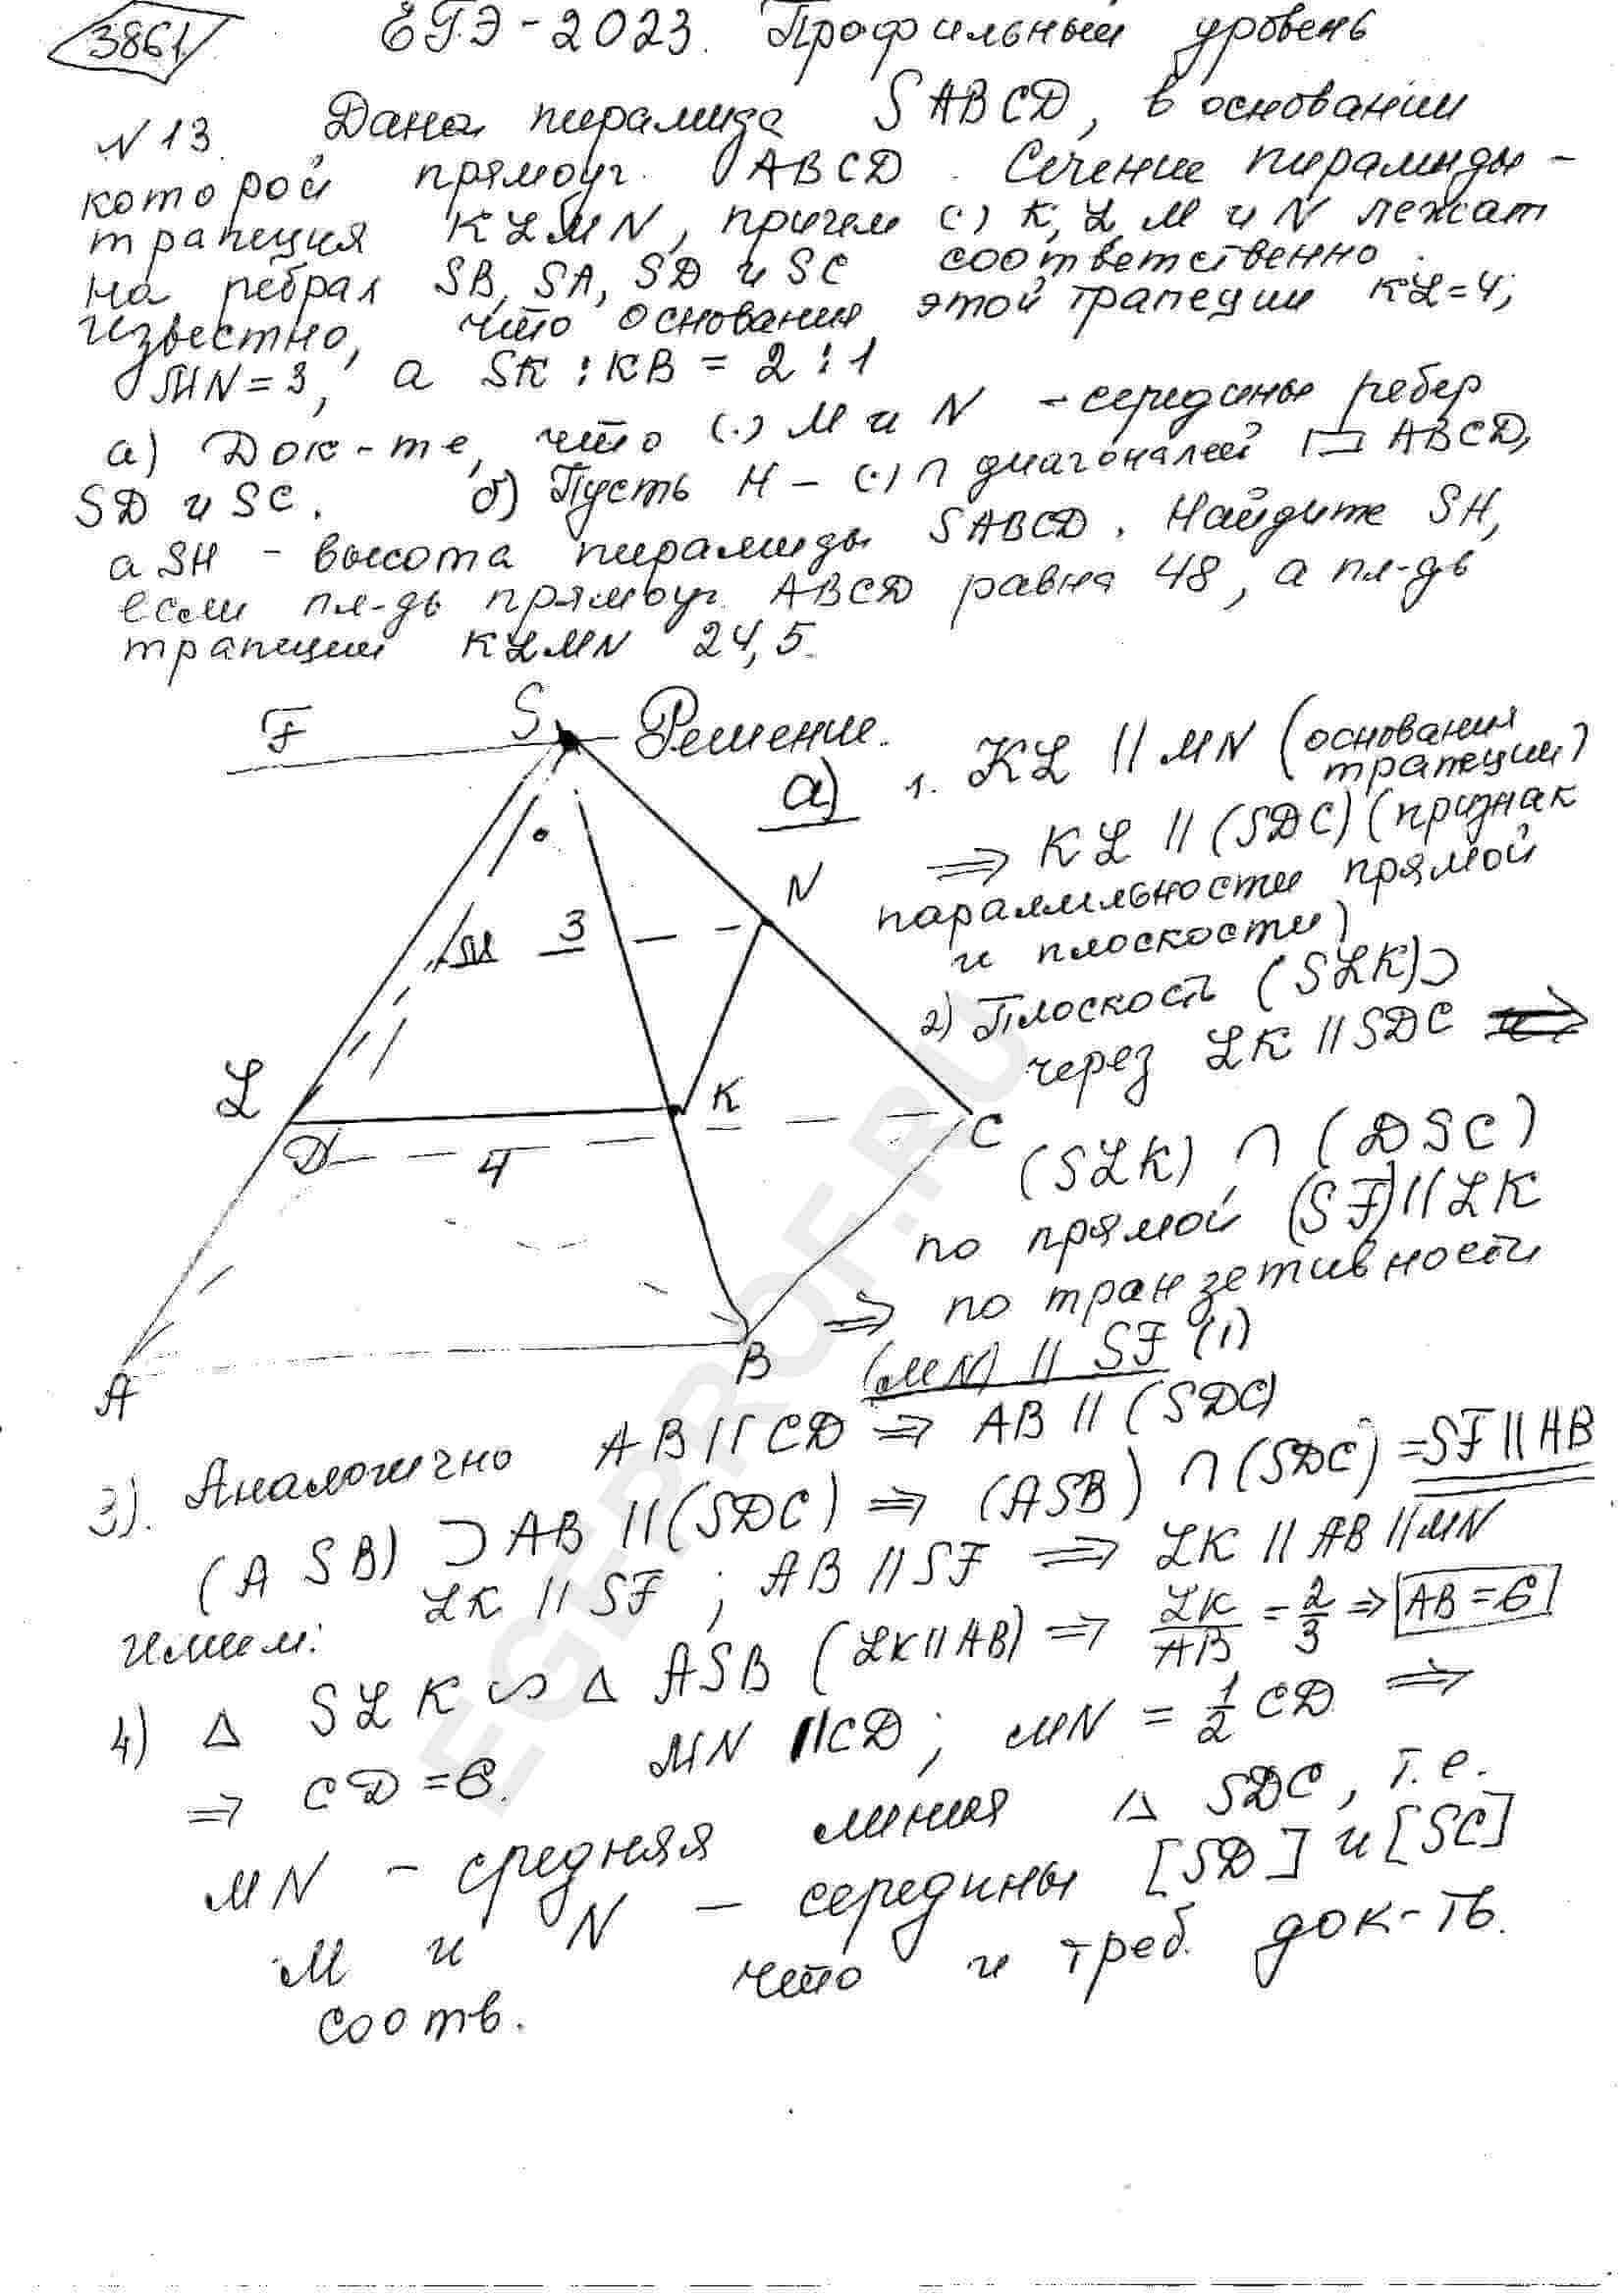 3861
ЕГЭ-2023. Профильный уровень
N13. Дана пирамида SABCD, в основании
которой прямоуг. ABCD. Сечение пирамиды -
трапеция KLMN, причем (·) K, L, M и N лежат
на ребрах SB, SA, SD и SC соответственно.
Известно, что основания этой трапеции KL=4;
MN=3, а SK:KB=2:1
а) Док-те, что (·) M и N - середины ребер
SD и SC. б) Пусть H - (·) ∩ диагоналей ▭ ABCD,
а SH - высота пирамиды SABCD. Найдите SH,
если пл-дь прямоуг. ABCD равна 48, а пл-дь
трапеции KLMN 24,5.
F S Решение.
а) 1. KL || MN (основания
трапеции)
⇒ KL || (SDC) (признак
параллельности прямой
и плоскости)
2) Плоскость (SLK) ⊃
через LK || SDC ⇒
(SLK) ∩ (DSC)
по прямой (SF) || LK
⇒ по транзетивности
(MN) || SF (1)
N
M 3
L K
D 4 C
A B
3). Аналогично AB || CD ⇒ AB || (SDC)
(ASB) ⊃ AB || (SDC) ⇒ (ASB) ∩ (SDC) = SF || AB
имеем: LK || SF ; AB || SF ⇒ LK || AB || MN
4) Δ SLK ∽ Δ ASB (LK || AB) ⇒ LK/AB = 2/3 ⇒ AB = 6
⇒ CD = 6. MN || CD; MN = 1/2 CD ⇒
MN - средняя линия Δ SDC, т.е.
M и N - середины [SD] и [SC]
соотв. что и треб. док-ть.
EGEPROF.RU